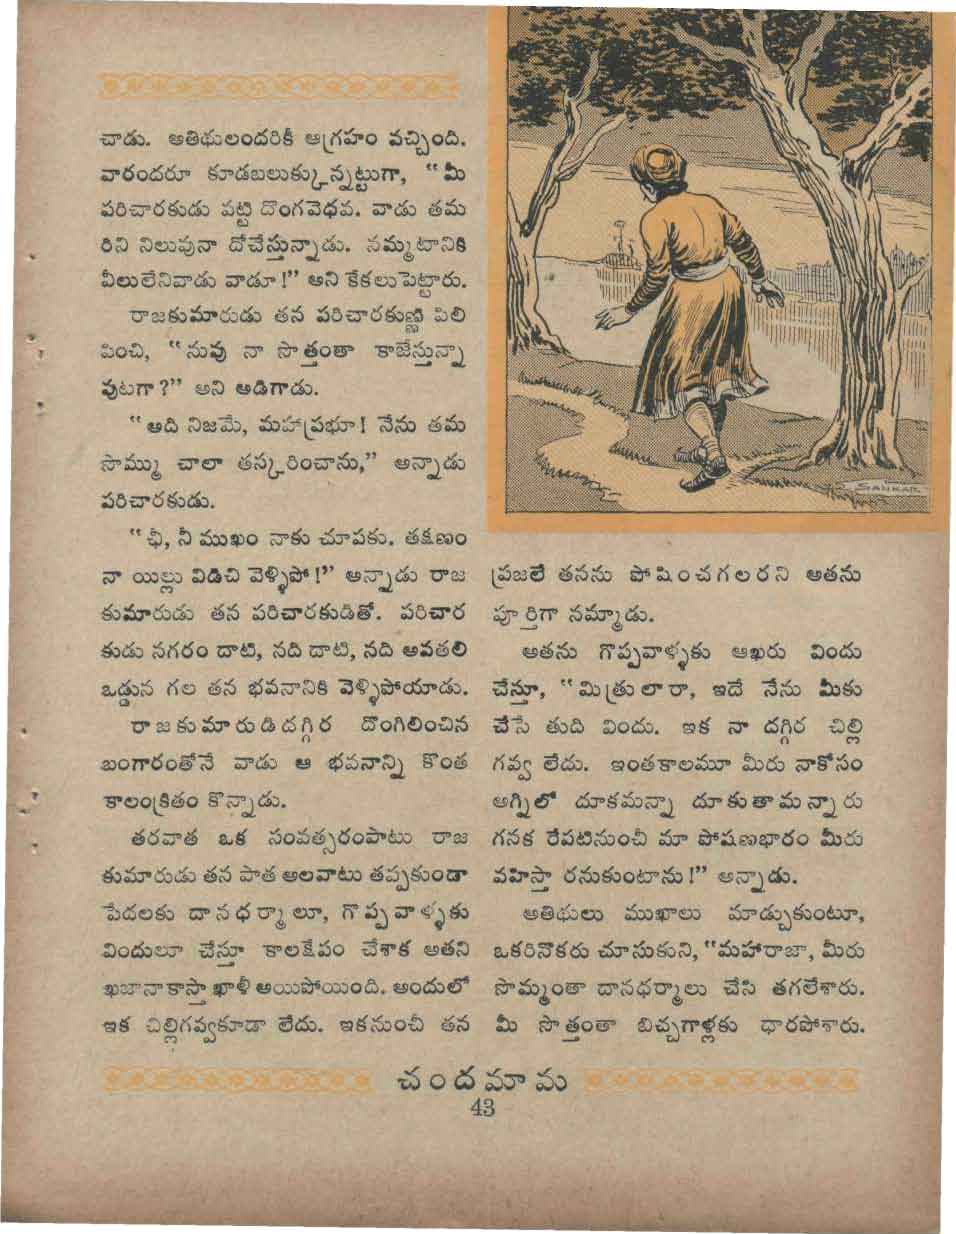 చాడు. అతిథులందరికీ ఆగ్రహం వచ్చింది.
వారందరూ కూడబలుక్కున్నట్టుగా, “మీ
పరిచారకుడు పట్టి దొంగవెధవ. వాడు తమ
రిని నిలువునా దోచేస్తున్నాడు. నమ్మటానికి
వీలులేనివాడు వాడూ!” అని కేకలుపెట్టారు.
రాజకుమారుడు తన పరిచారకుణ్ణి పిలి
పించి, “నువు నా సొత్తంతా కాజేస్తున్నా
వుటగా?” అని అడిగాడు.
“అది నిజమే, మహాప్రభూ! నేను తమ
సొమ్ము చాలా తస్కరించాను,” అన్నాడు
పరిచారకుడు.
“ఛీ, నీ ముఖం నాకు చూపకు. తక్షణం
నా యిల్లు విడిచి వెళ్ళిపో!” అన్నాడు రాజ
కుమారుడు తన పరిచారకుడితో. పరిచార
కుడు నగరం దాటి, నది దాటి, నది అవతలి
ఒడ్డున గల తన భవనానికి వెళ్ళిపోయాడు.
రాజకుమారుడిదగ్గిర దొంగిలించిన
బంగారంతోనే వాడు ఆ భవనాన్ని కొంత
కాలంక్రితం కొన్నాడు.
తరవాత ఒక సంవత్సరంపాటు రాజ
కుమారుడు తన పాత అలవాటు తప్పకుండా
పేదలకు దానధర్మాలూ, గొప్పవాళ్ళకు
విందులూ చేస్తూ కాలక్షేపం చేశాక అతని
ఖజానాకాస్తా ఖాళీ అయిపోయింది. అందులో
ఇక చిల్లిగవ్వకూడా లేదు. ఇకనుంచీ తన
SANKAR
ప్రజలే తనను పోషించగలరని అతను
పూర్తిగా నమ్మాడు.
అతను గొప్పవాళ్ళకు ఆఖరు విందు
చేస్తూ, “మిత్రులారా, ఇదే నేను మీకు
చేసే తుది విందు. ఇక నా దగ్గిర చిల్లి
గవ్వ లేదు. ఇంతకాలమూ మీరు నాకోసం
అగ్నిలో దూకమన్నా దూకుతామన్నారు
గనక రేపటినుంచీ మా పోషణభారం మీరు
వహిస్తారనుకుంటాను!” అన్నాడు.
అతిథులు ముఖాలు మాడ్చుకుంటూ,
ఒకరినొకరు చూసుకుని, “మహారాజా, మీరు
సొమ్మంతా దానధర్మాలు చేసి తగలేశారు.
మీ సొత్తంతా బిచ్చగాళ్లకు ధారపోశారు.
చందమామ
43